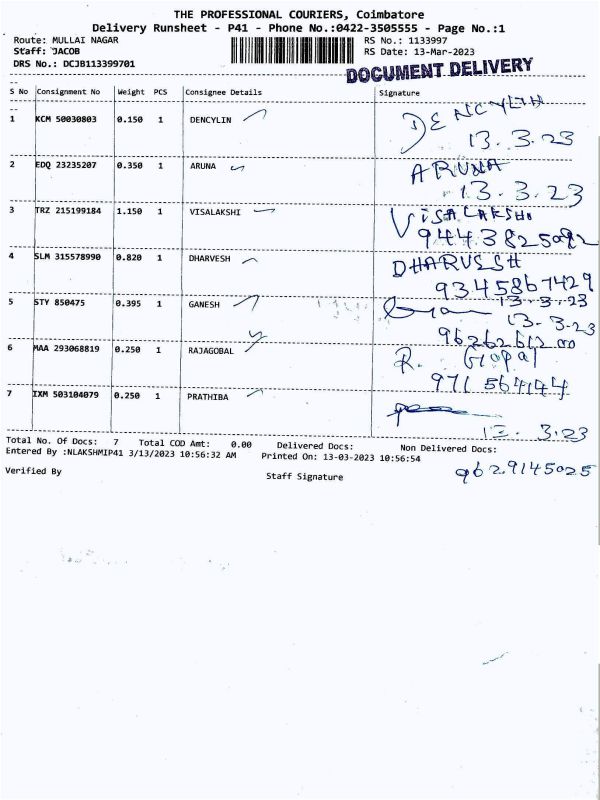 THE PROFESSIONAL COURIERS, Coimbatore
Delivery Runsheet - P41 - Phone No.:0422-3505555 - Page No.:1
Route: MULLAI NAGAR
RS No.: 1133997
Staff: JACOB
RS Date: 13-Mar-2023
DRS No.: DCJB113399701
DOCUMENT DELIVERY
S No Consignment No Weight PCS Consignee Details Signature
1 KCM 50030803 0.150 1 DENCYLIN DENCYLIN
13.3.23
2 EDQ 23235207 0.350 1 ARUNA ARUNA
13.3.23
3 TRZ 215199184 1.150 1 VISALAKSHI VISALAKSHI
9443825092
4 SLM 315578990 0.820 1 DHARVESH DHARVESH
9345867429
13-3-23
5 STY 850475 0.395 1 GANESH
13-3-23
6 MAA 293068819 0.250 1 RAJAGOBAL R. Gopal
971564144
7 IXM 503104079 0.250 1 PRATHIBA
13. 3.23
Total No. Of Docs: 7 Total COD Amt: 0.00 Delivered Docs: Non Delivered Docs:
Entered By :NLAKSHMIP41 3/13/2023 10:56:32 AM Printed On: 13-03-2023 10:56:54
9629145025
Verified By Staff Signature